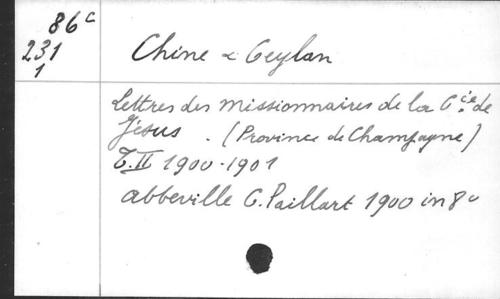 86c
231
1
Chine & Ceylan
Lettres des missionnaires de la Cie de
Jésus. (Province de Champagne)
T. II 1900-1901
Abbeville C. Paillart 1900 in 8o